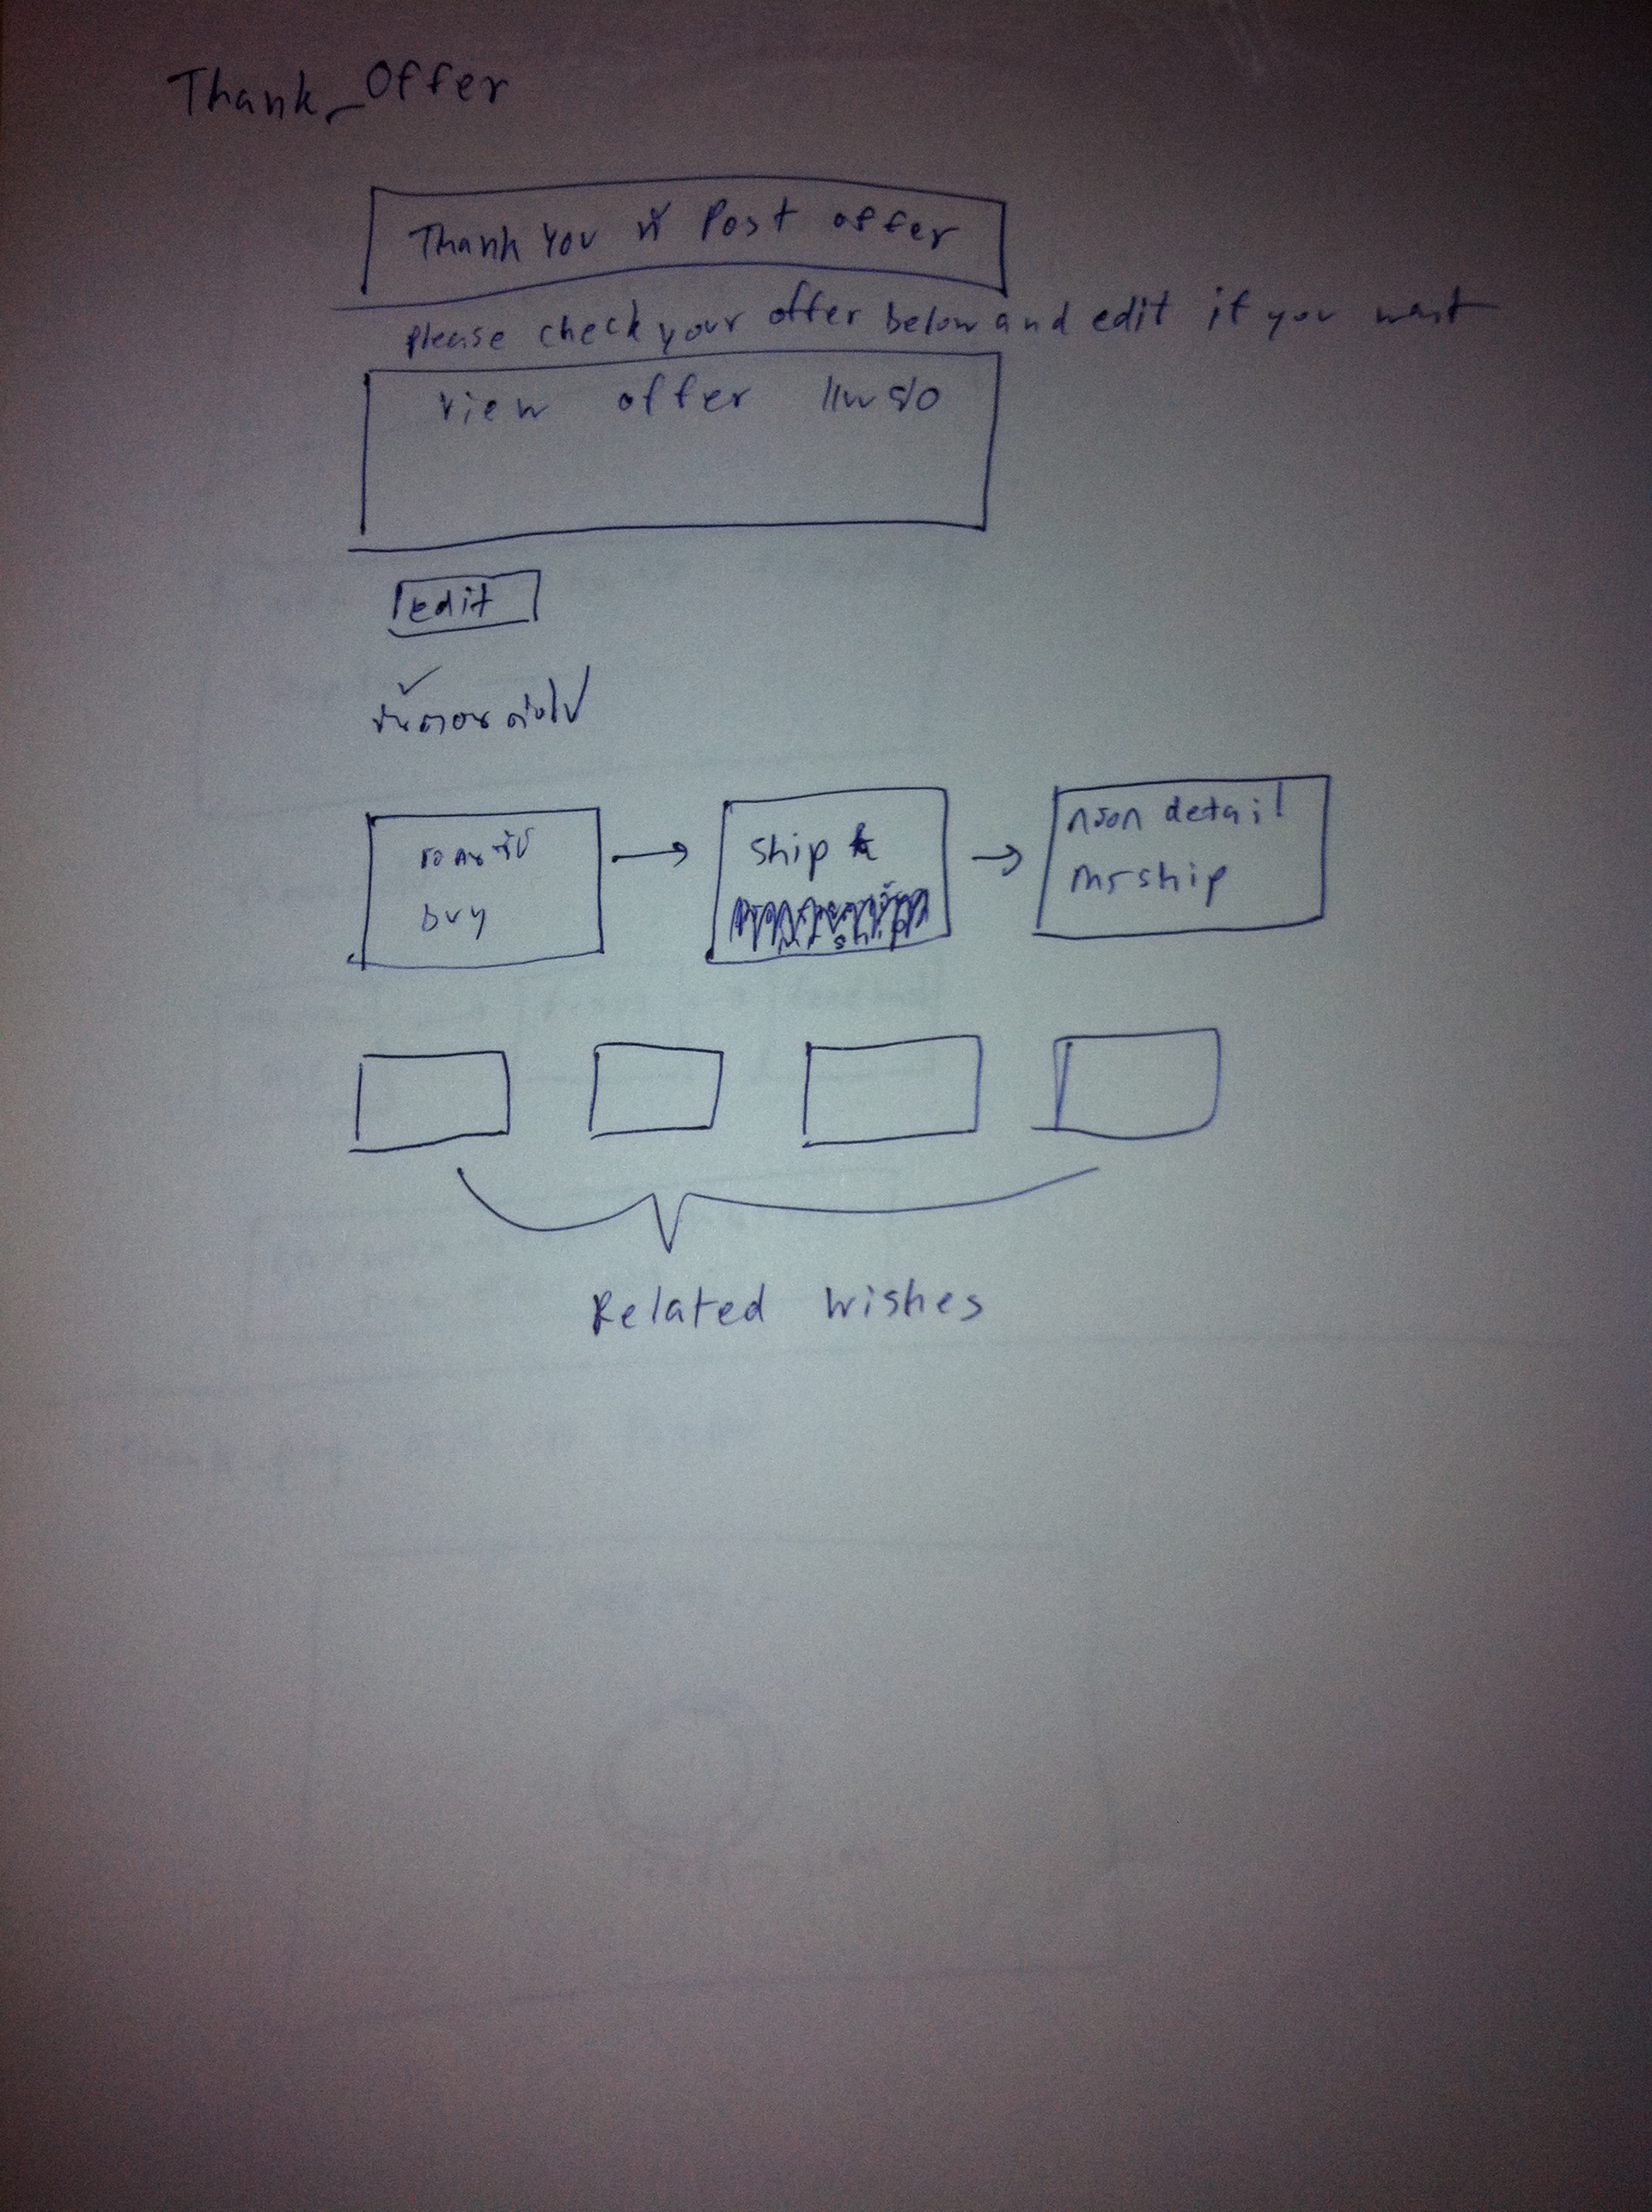 Thank_Offer
Thank You ที่ Post offer
please check your offer below and edit if you want
view offer แบบย่อ
edit
ขั้นตอนต่อไป
รอคน
buy
ship
กรอก detail
การ ship
Related wishes